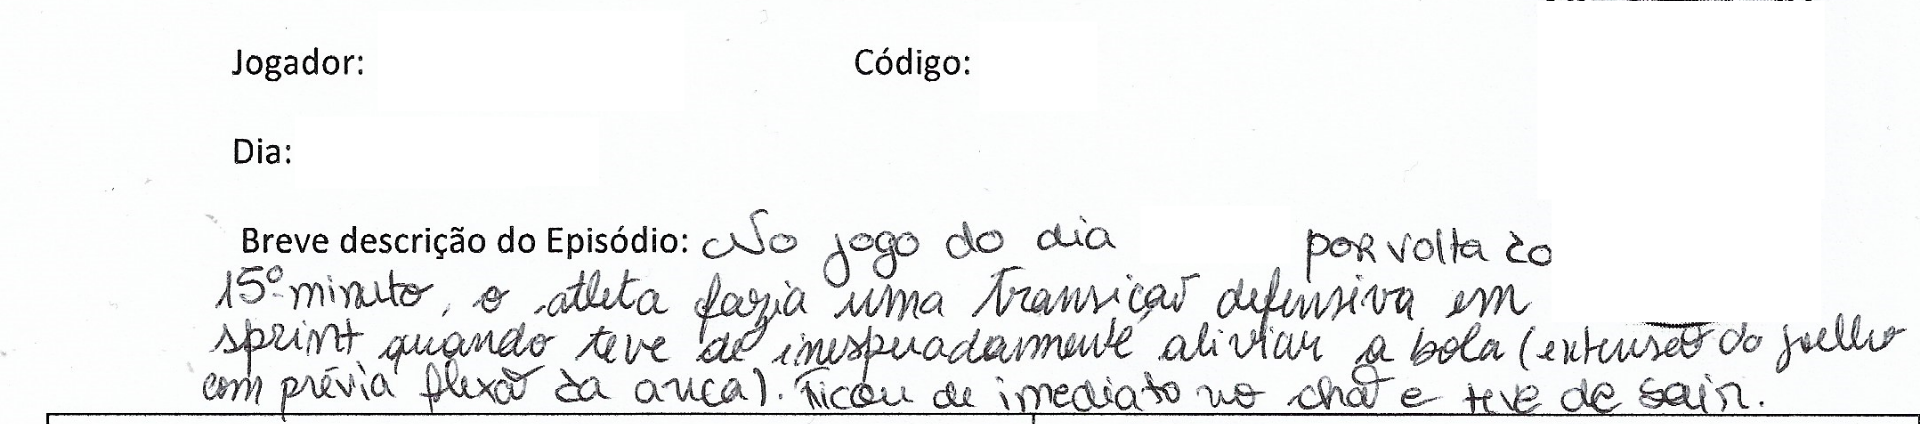 Jogador: Código:
Dia:
Breve descrição do Episódio: No jogo do dia por volta do
15º minuto, o atleta fazia uma transição defensiva em
sprint quando teve de inesperadamente aliviar a bola (extensão do joelho
com prévia flexão da anca). Ficou de imediato no chão e teve de sair.